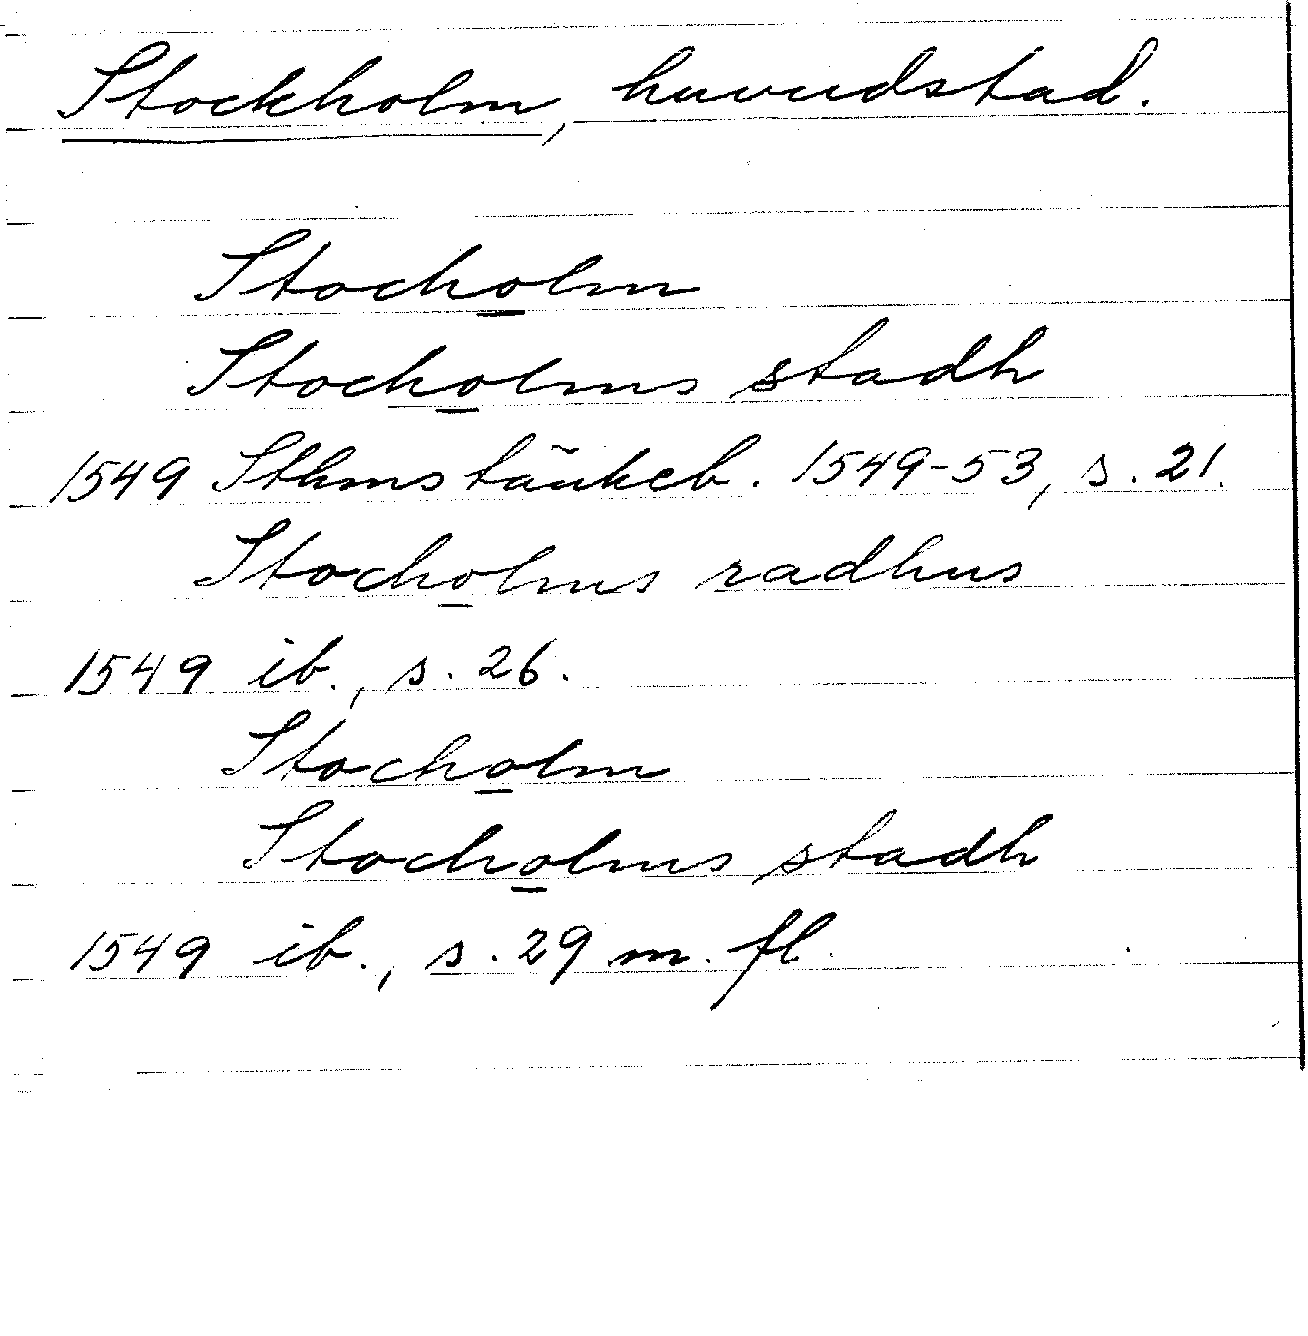 Stockholm, huvudstad.
Stocholm
Stocholms stadh
1549 Sthms tänkeb. 1549-53, s. 21.
Stocholms radhus
1549 ib., s. 26.
Stocholm
Stocholms stadh
1549 ib., s. 29 m. fl.